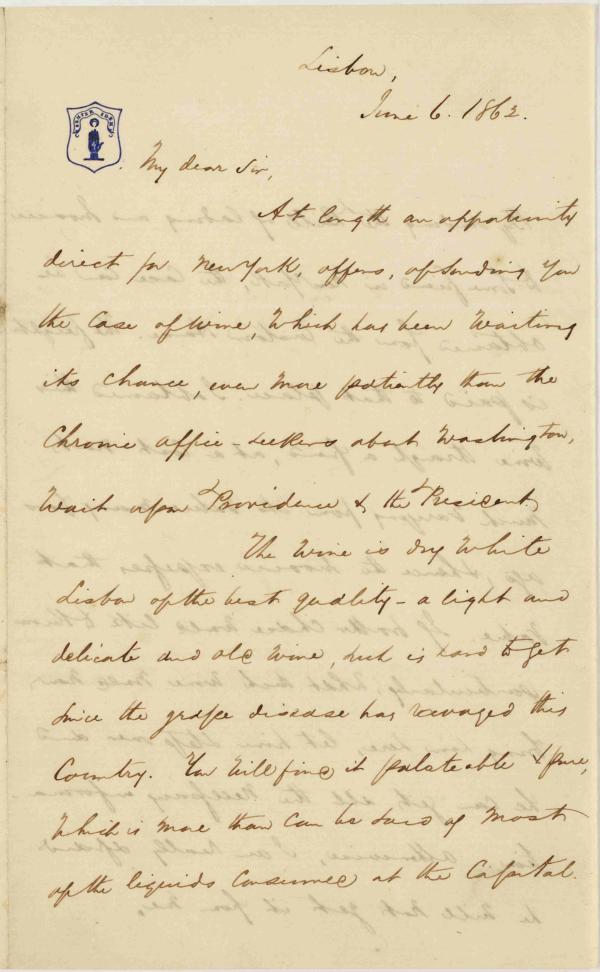 Lisbon,
June 6. 1862.
SEMPER IDEM
My dear Sir,
At length an opportunity
direct for New York, offers, of sending you
the case of wine, which has been waiting
its chance, even more patiently than the
chronic office-seekers about Washington,
wait upon Providence & the President.
The wine is dry white
Lisbon of the best quality - a light and
delicate and old wine, such is hard to get
since the grape disease has ravaged this
Country. You will find it palateable & pure,
which is more than can be said of most
of the liquids consumed at the Capital.